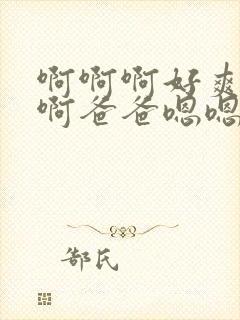 啊啊啊好爽
啊爸爸嗯嗯
郜氏